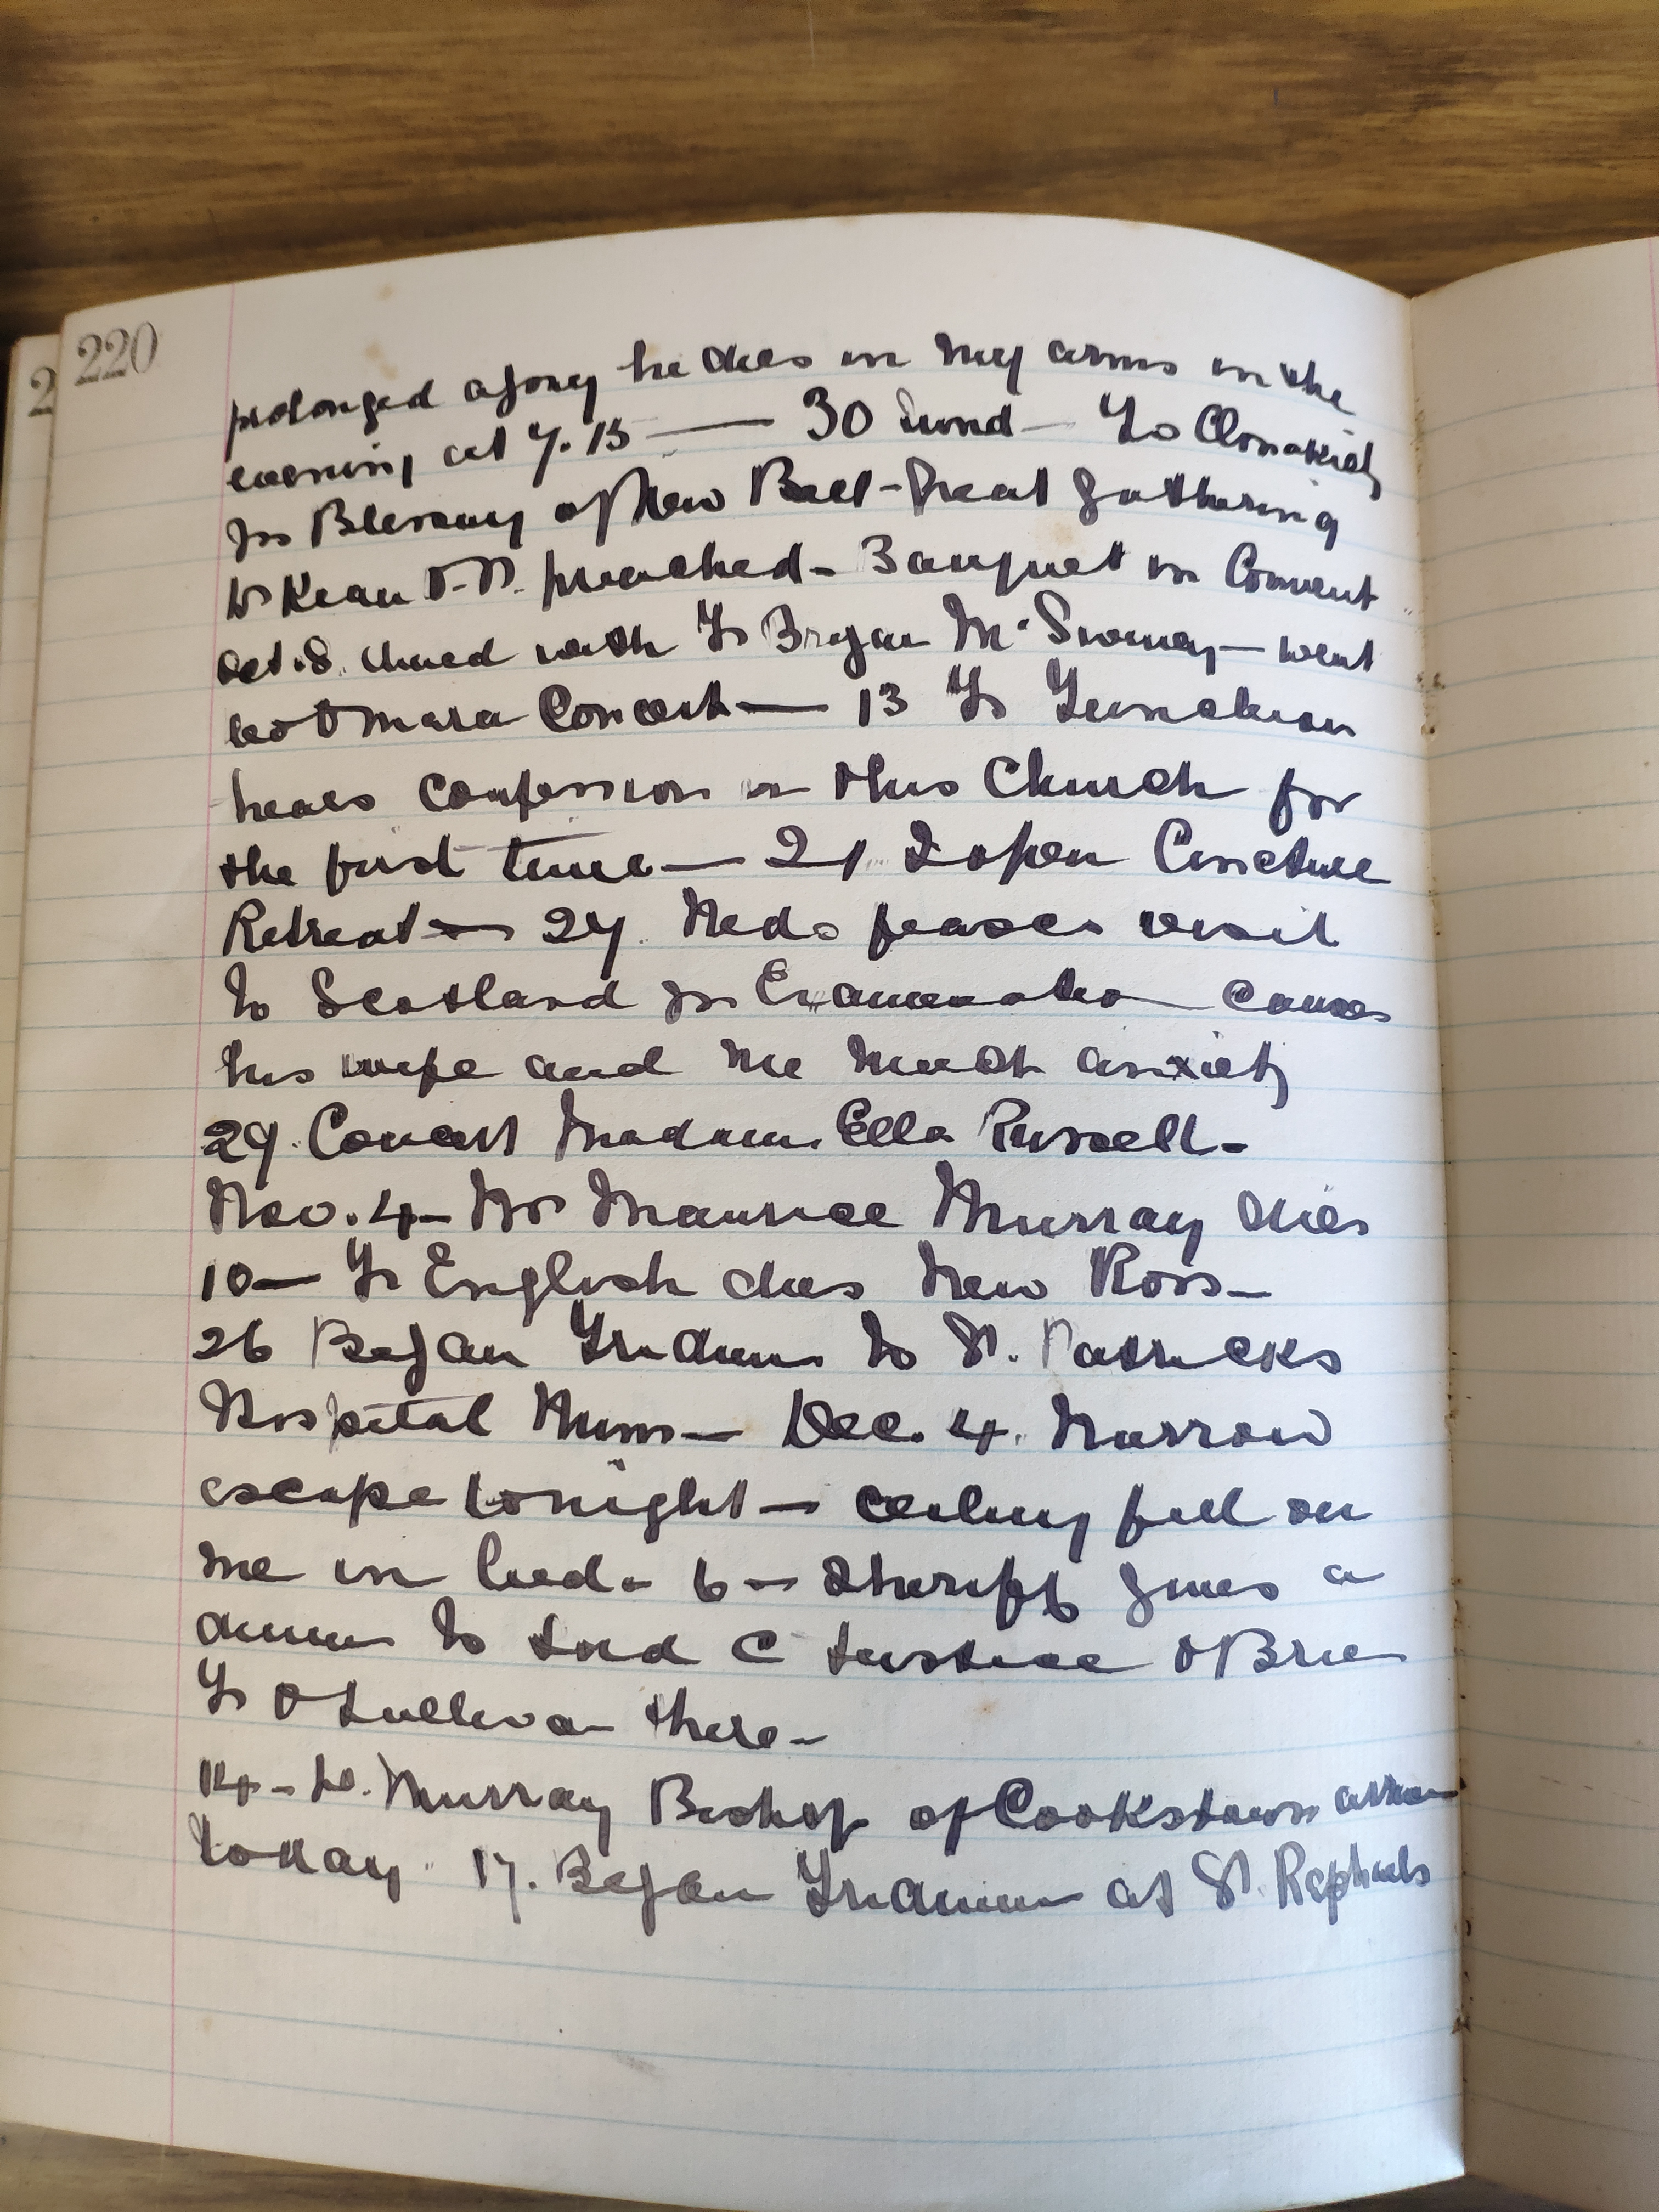 220
prolonged agony he dies in my arms in the
evening at 7.15 — 30 Sund — To Clonakilty
for Blessing of New Bell - Great gathering
Dr Keane O.P. preached - Banquet in Convent
Oct. 8. dined with Fr Bryan McSweeney — went
to O Mara Concert — 13 Fr
hears confession in this Church for
the first time — 21 I open Cincture
Retreat — 27. Neds visit
to Scotland for Examination causes
his wife and me much anxiety
29. Concert Madam Ella Russell -
Nov. 4 — Mr Maurice Murray dies
10 — Fr English dies New Ross —
26 Began Triduum to St. Patricks
Hospital Nuns — Dec. 4. Narrow
escape tonight — ceiling fell on
me in bed - 6 — Sheriff gives a
dinner to Lord C Justice O Brien
Fr O Sullivan there -
14 - Dr. Murray Bishop of Cookstown
today. 17. Began Triduum at St. Raphaels